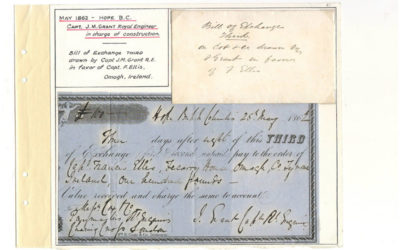 MAY 1862 - HOPE B.C.
CAPT. J.M. GRANT Royal Engineer
in charge of construction.
Bill of Exchange THIRD
drawn by Capt J.M. Grant R.E.
in favor of Capt. F. Ellis,
Omagh, Ireland.
Bill of Exchange
Third
drawn by
Grant in favour
of F Ellis
£100 Hope British Columbia 25th May 1862
days after sight of this THIRD
of Exchange first & second unpaid pay to the order of
Capt Francis Ellis, House Omagh, Co. Tyrone
Ireland One hundred pounds
Value received and charge the same to account
Messrs Cox & Co
J. Grant Capt Rl Engrs
London